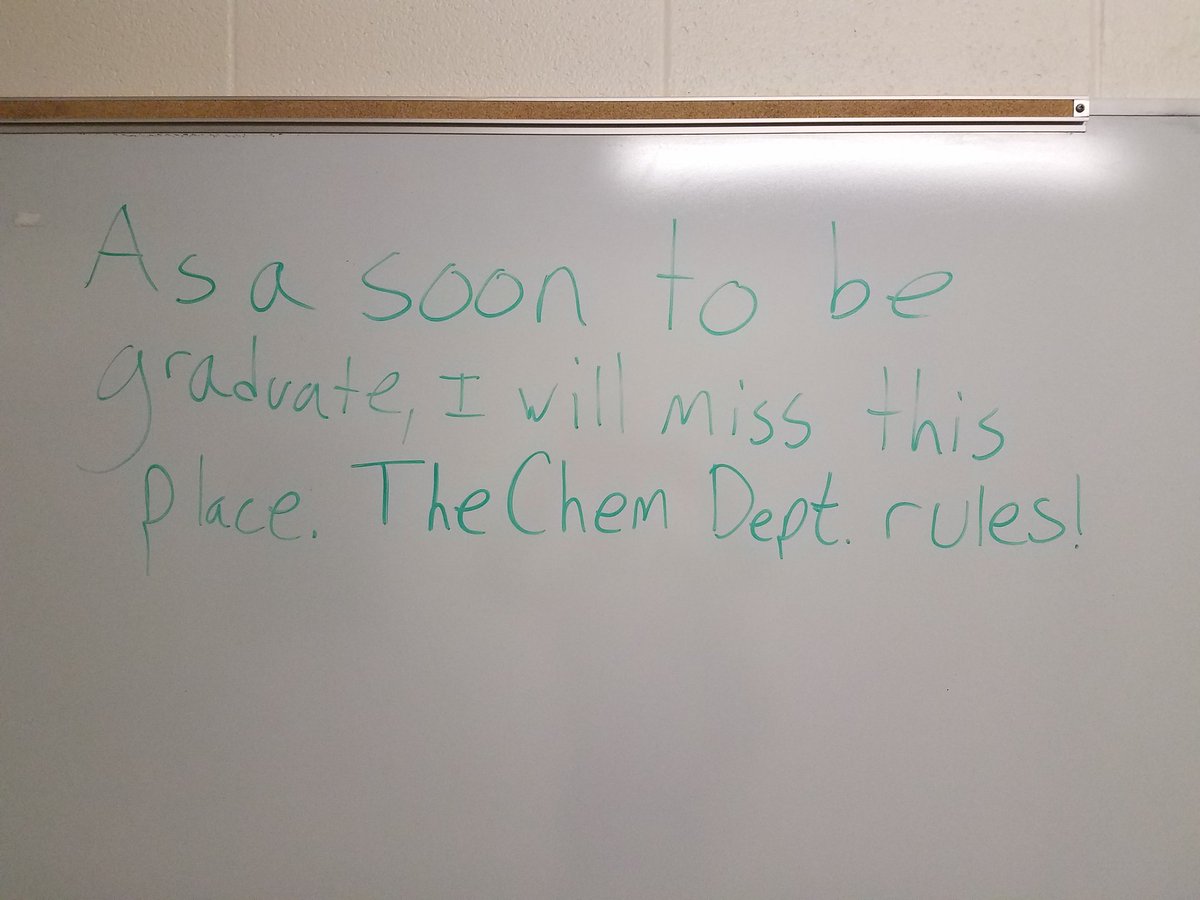 As a soon to be
graduate, I will miss this
place. The Chem Dept. rules!